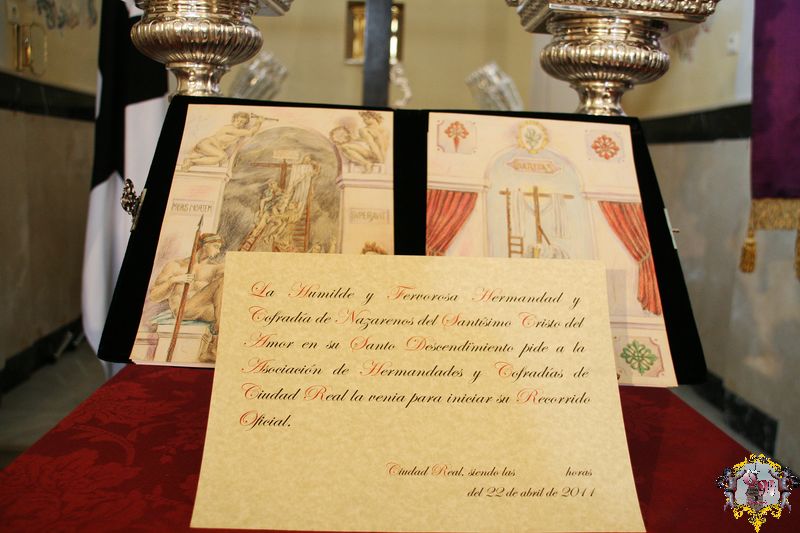 MORS MORTEM
SUPERAVIT
CARITAS
La Humilde y Fervorosa Hermandad y
Cofradía de Nazarenos del Santísimo Cristo del
Amor en su Santo Descendimiento pide a la
Asociación de Hermandades y Cofradías de
Ciudad Real la venia para iniciar su Recorrido
Oficial.
Ciudad Real, siendo las horas
del 22 de abril de 2011